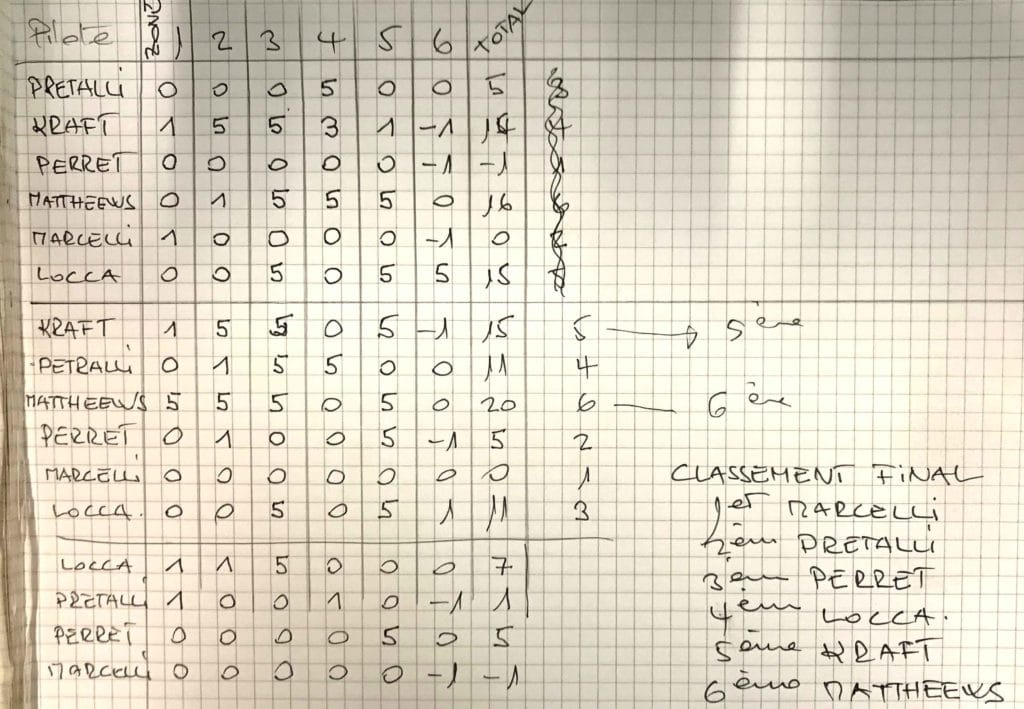 Pilote ZONE 1 2 3 4 5 6 TOTAL
PRETALLI 0 0 0 5 0 0 5 3
KRAFT 1 5 5 3 1 -1 14 4
PERRET 0 0 0 0 0 -1 -1 1
MATTHEEWS 0 1 5 5 5 0 16 6
MARCELLI 1 0 0 0 0 -1 0 2
LOCCA 0 0 5 0 5 5 15
KRAFT 1 5 5 0 5 -1 15 5 → 5ème
PETRALLI 0 1 5 5 0 0 11 4
MATTHEEWS 5 5 5 0 5 0 20 6 — 6ème
PERRET 0 1 0 0 5 -1 5 2
MARCELLI 0 0 0 0 0 0 0 1
LOCCA. 0 0 5 0 5 1 11 3
LOCCA 1 1 5 0 0 0 7
PRETALLI 1 0 0 1 0 -1 1
PERRET 0 0 0 0 5 0 5
MARCELLI 0 0 0 0 0 -1 -1
CLASSEMENT FINAL
1er MARCELLI
2èm PRETALLI
3èm PERRET
4èm LOCCA.
5ème KRAFT
6ème MATTHEEWS